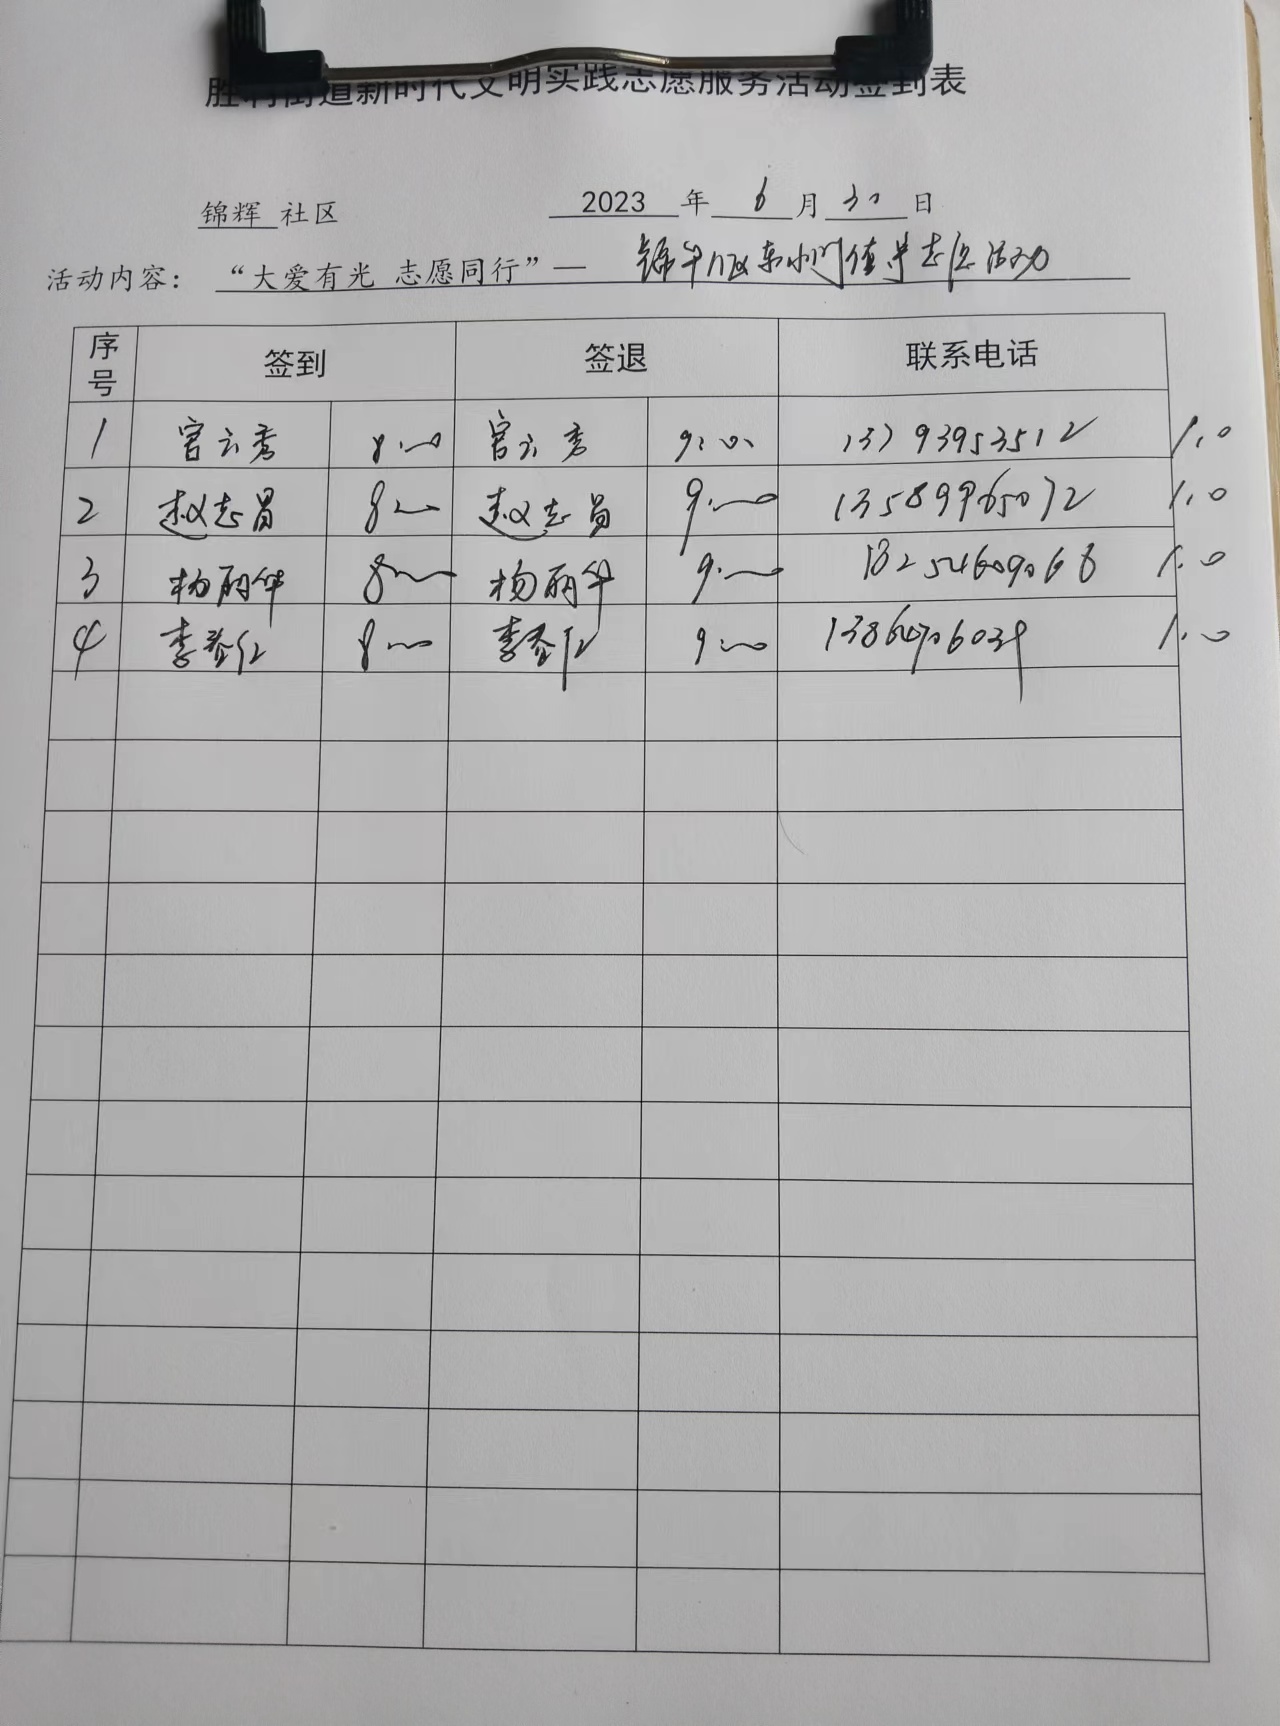 胜利街道新时代文明实践志愿服务活动签到表
锦辉 社区 2023 年 6 月 30 日
活动内容： “大爱有光 志愿同行”— 锦华八区东小门值岗志愿活动
序号 签到 签退 联系电话
1 官云秀 8:00 官云秀 9:00 13793953512 1.0
2 赵志昌 8:00 赵志昌 9:00 13589965072 1.0
3 杨丽华 8:00 杨丽华 9:00 18254609068 1.0
4 李 8:00 李 9:00 1.0